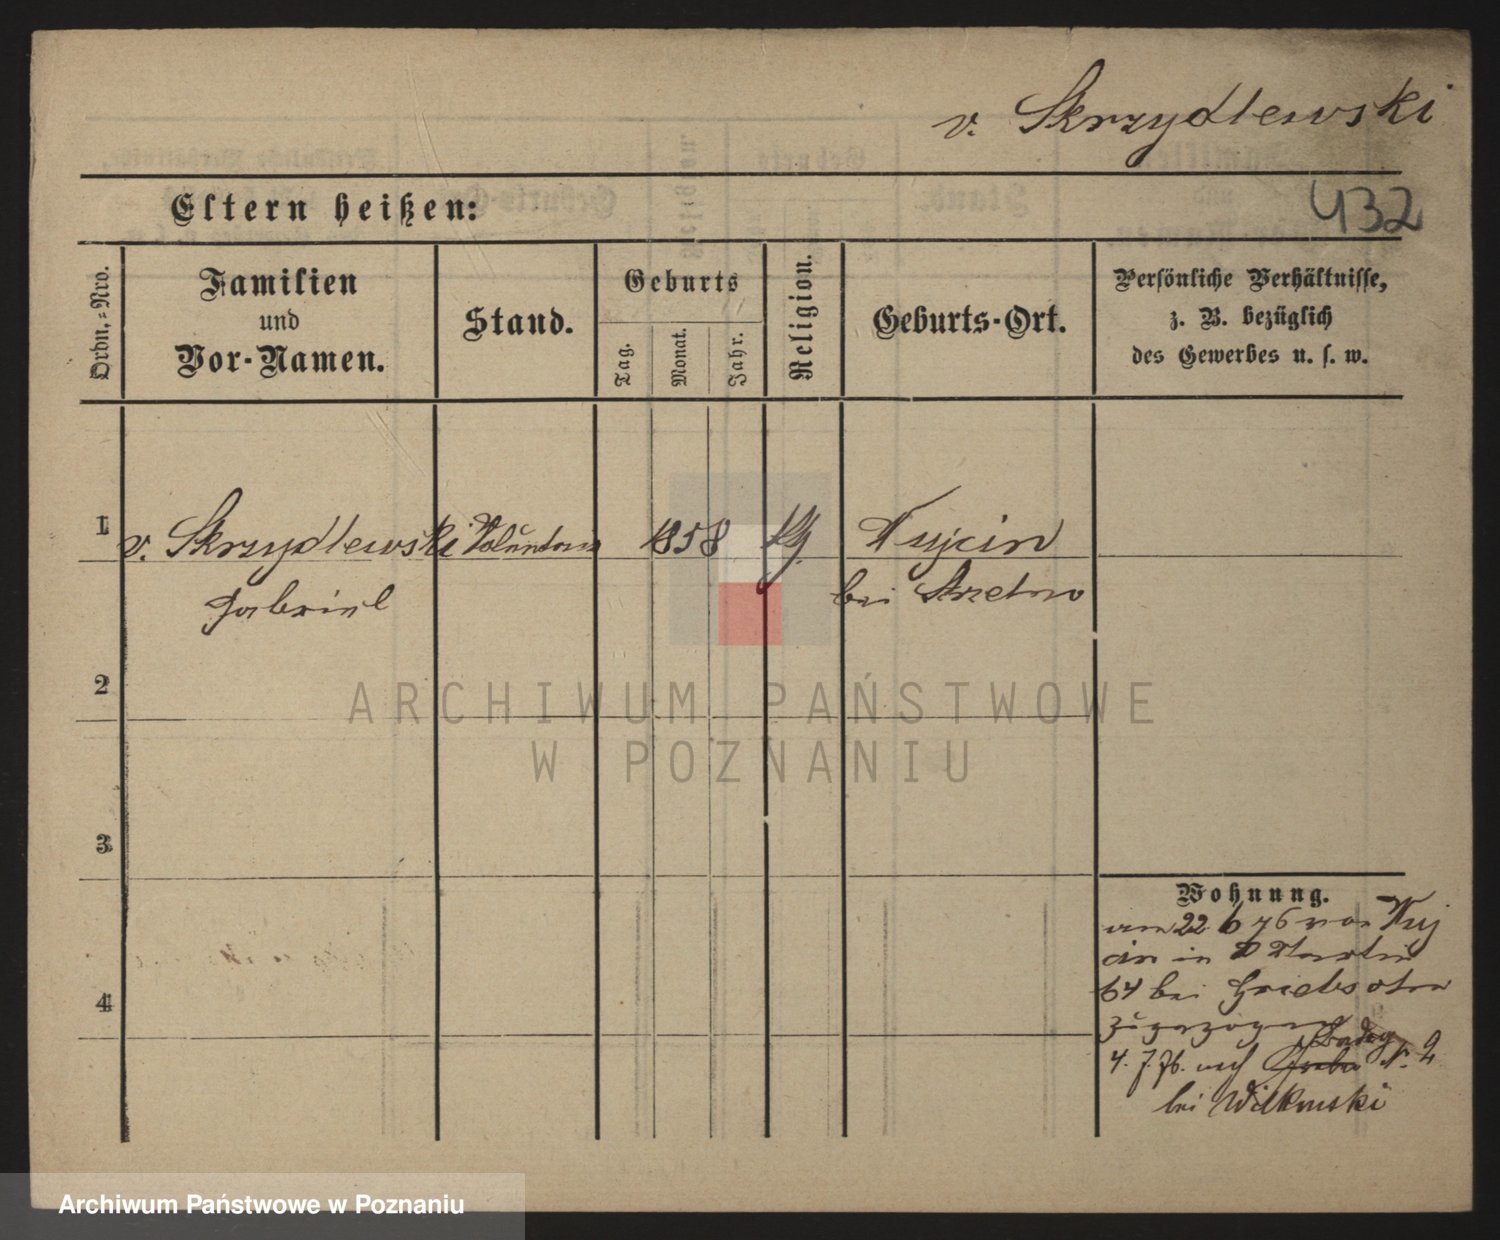 v. Skrzydlewski
432
Eltern heißen:
Ordn.-Nro.
Familien
und
Vor-Namen.
Stand.
Geburts
Tag.
Monat.
Jahr.
Religion.
Geburts-Ort.
Persönliche Verhältnisse,
z. B. bezüglich
des Gewerbes u. s. w.
1
v. Skrzydlewski
Voluntair
1858
Kujcin
Gabriel
bei Strzelno
2
3
4
Wohnung.
am 22 6 76 von Kuj
cin in
64 bei
zugezogen
4. 7. 76. nach N. 2
bei Wilkonski
ARCHIWUM PAŃSTWOWE
W POZNANIU
Archiwum Państwowe w Poznaniu